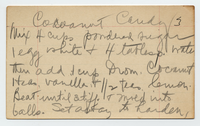 Cocoanut Candy 3
Mix 4 cups powdered sugar
1 egg white & 4 tables water
then add 1 cup Drom. Cocoanut
vanilla & 1/2 tea lemon.
Beat until stiff & mold into
balls. Set away to harden,